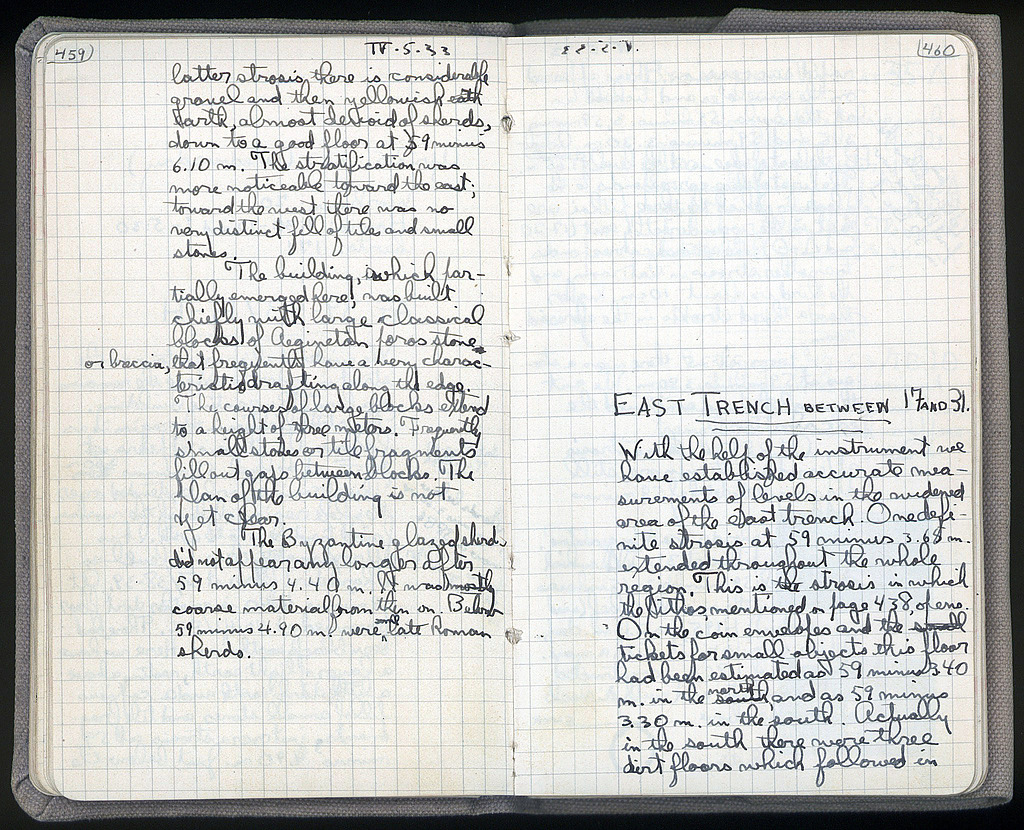 459
IV-5-33
latter strosis, there is considerable
gravel and then yellowish
earth, almost devoid of sherds,
down to a good floor at 59 minus
6.10 m. The stratification was
more noticeable toward the east;
toward the west there was no
very distinct fill of tiles and small
stones.
The building, which par-
tially emerged here, was built
chiefly with large classical
blocks of Aeginetan poros stone
or breccia, that frequently have a very charac-
teristic drafting along the edge.
The courses of large blocks extend
to a height of three meters. Frequently
small stones or tile fragments
fill out gaps between blocks. The
plan of the building is not
yet clear.
The Byzantine glazed sherds
did not appear any longer after
59 minus 4.40 m. It was mostly
coarse material from then on. Below
59 minus 4.90 m. were some late Roman
sherds.
460
EAST TRENCH BETWEEN 17 AND 31.
With the help of the instrument we
have established accurate mea-
surements of levels in the widened
area of the East trench. One defi-
nite strosis at 59 minus 3.68 m.
extended throughout the whole
region. This is the strosis in which
the pithos, mentioned on page 438, opens.
On the coin envelopes and the small
tickets for small objects this floor
had been estimated as 59 minus 3.40
m. in the north south and as 59 minus
3.30 m. in the south. Actually
in the south there were three
dirt floors which followed in